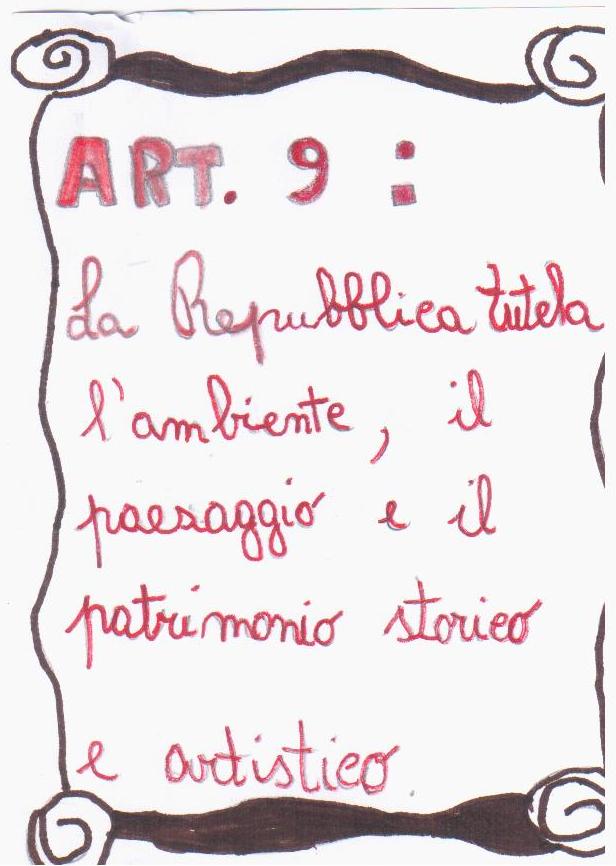 ART. 9 :
La Repubblica tutela
l'ambiente, il
paesaggio e il
patrimonio storico
e artistico